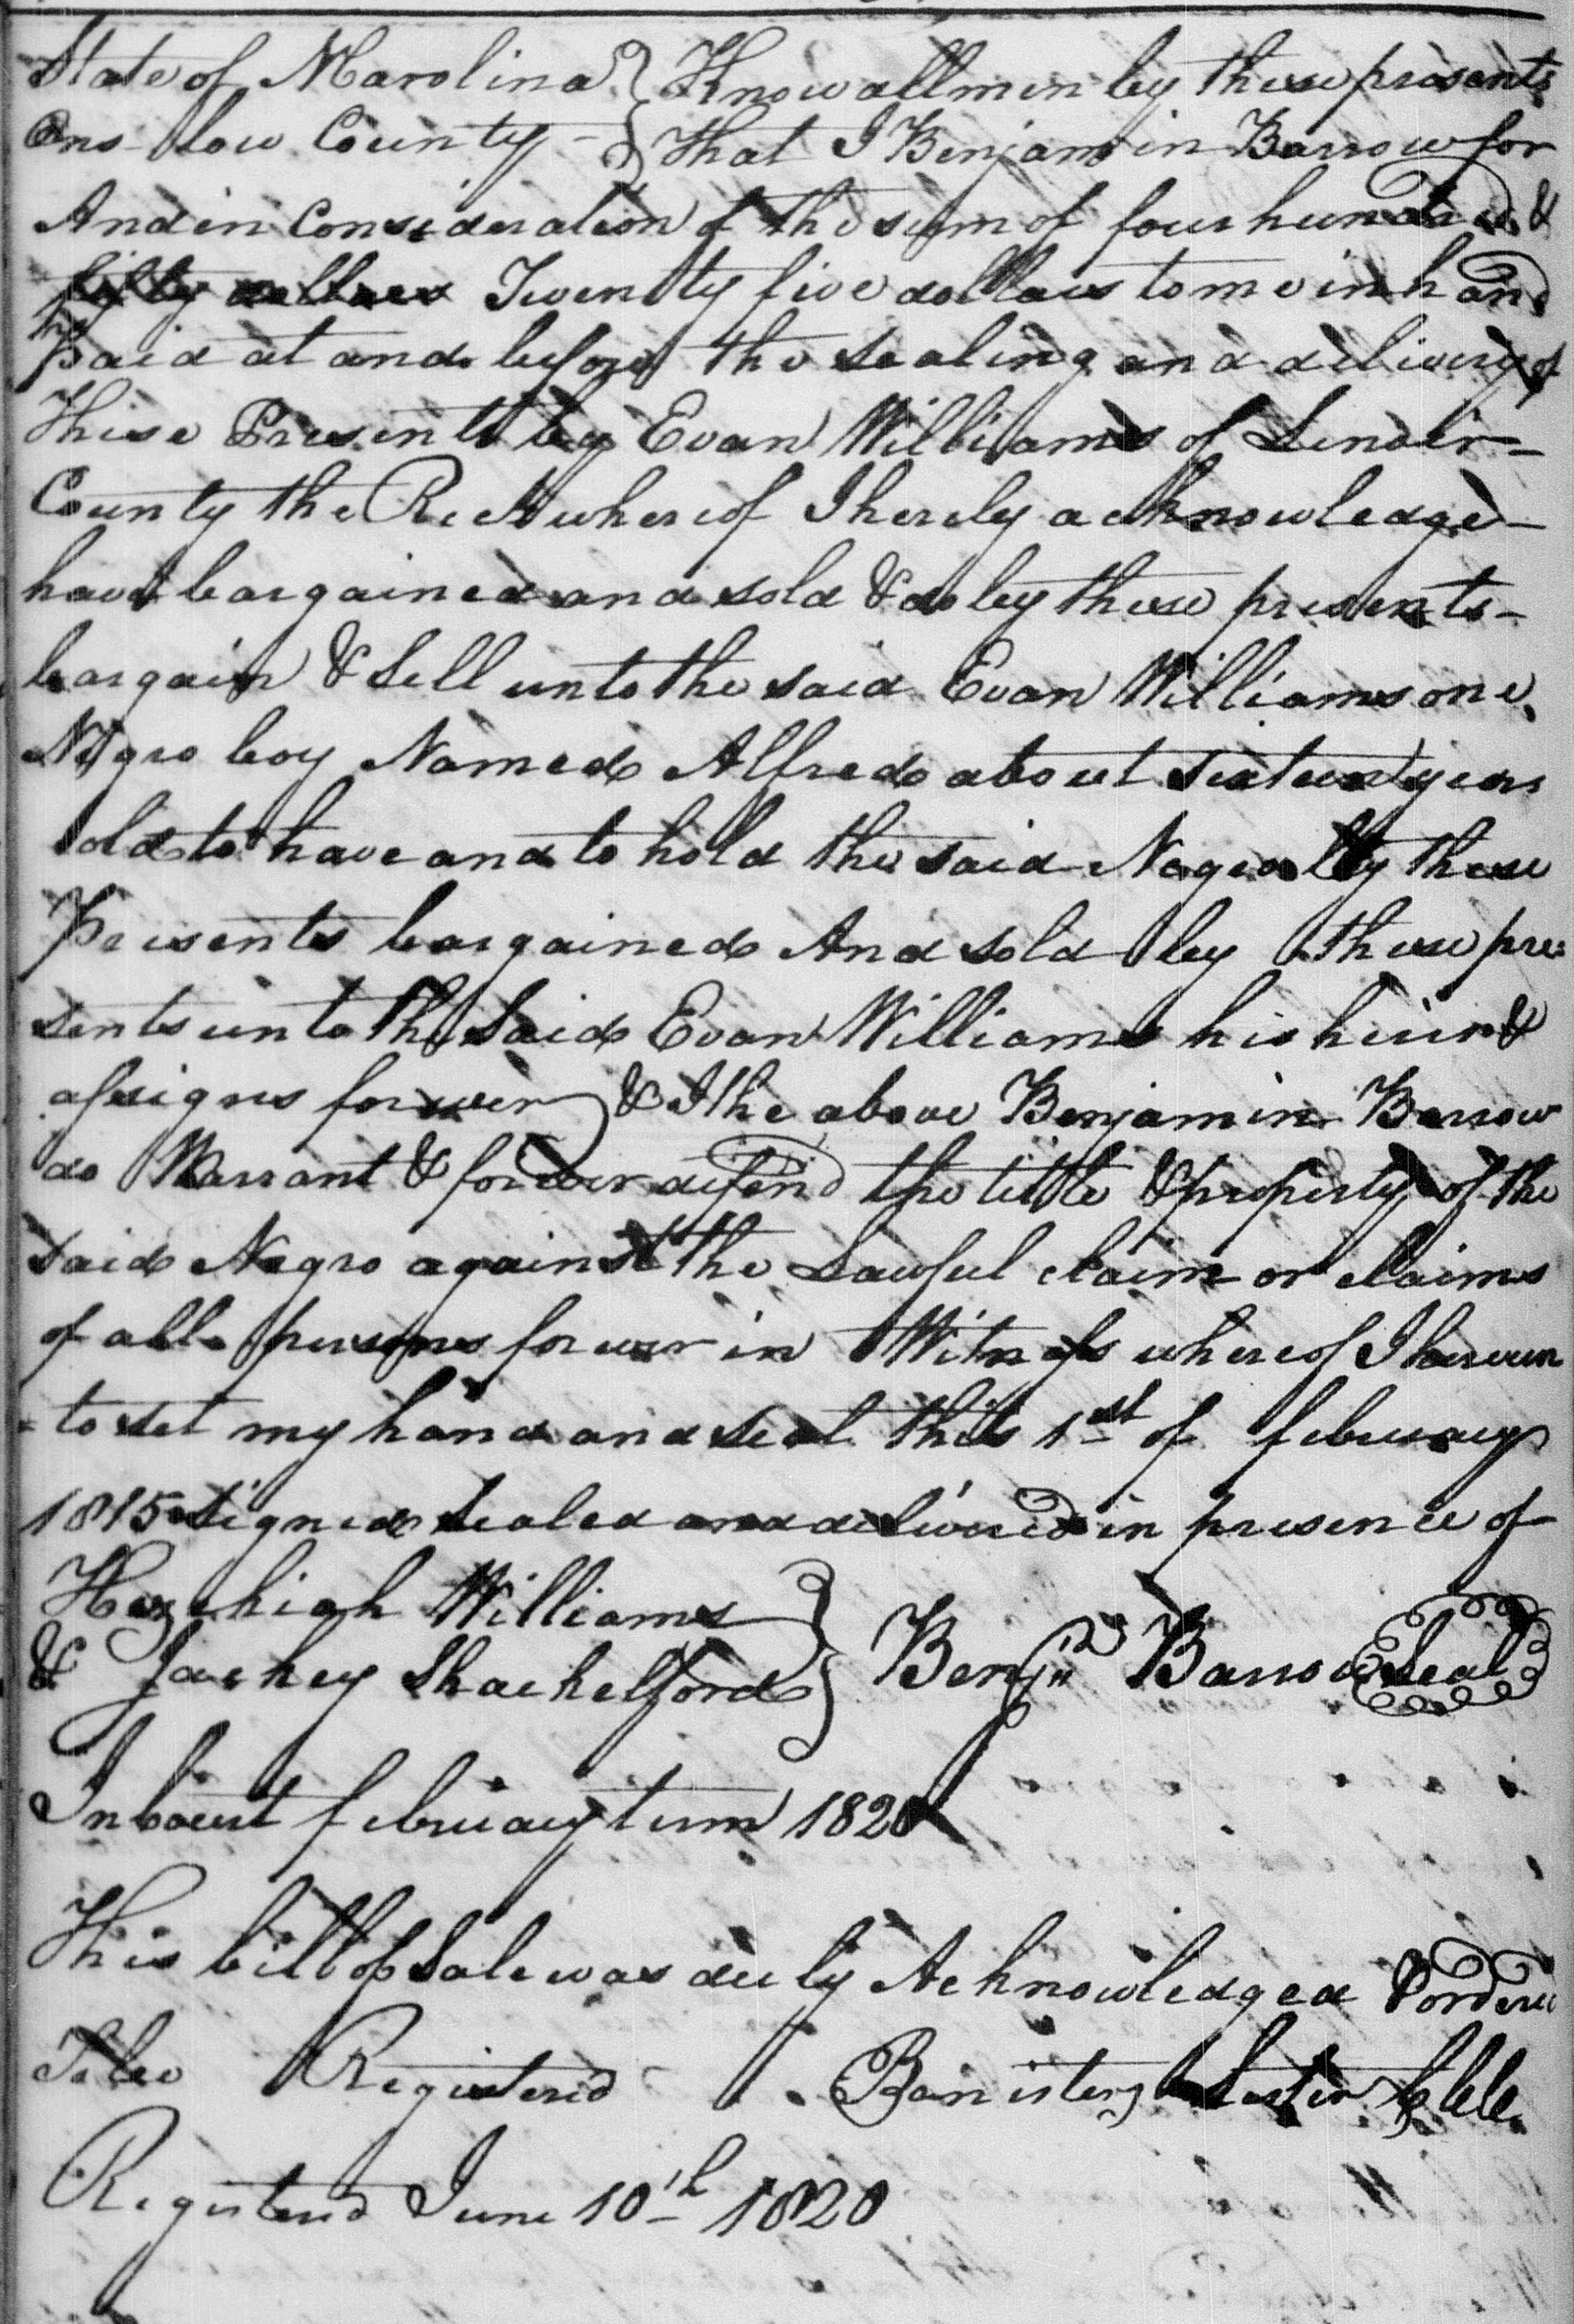 State of N Carolina } Know all men by these presents
Ons low County - } that I Benjamin Barrow for
And in Consideration of the sum of four hundred &
fifty dollars Twenty five dollars to me in hand
paid at and before the sealing and delivery of
These Presents by Evan Williams of Lenoir-
County the Rect whereof I hereby acknowledge-
have bargained and sold & do by these presents-
bargain & Sell unto the said Evan Williams one
Negro boy Named Alfred about sixteen years
old to have and to hold the said Negro by these
Presents bargained And sold by these pre=
sents unto the Said Evan Williams his heirs &
assigns forever & I the above Benjamin Barrow
do Warrant & forever defend the tittle & property of the
said Negro against the Lawful claim or claims
of all persons forever in Witness whereof I hereun
=to set my hand and seal this 1st of february
1815 Signed Sealed and delivered in presence of
Hezekiah Williams } Benjn Barrow Seal
& Jackey Shackelford }
In Court february term 1820
This bill of Sale was duly Acknowledged & ordered
Registered Banister Lester
Registered June 10th 1820